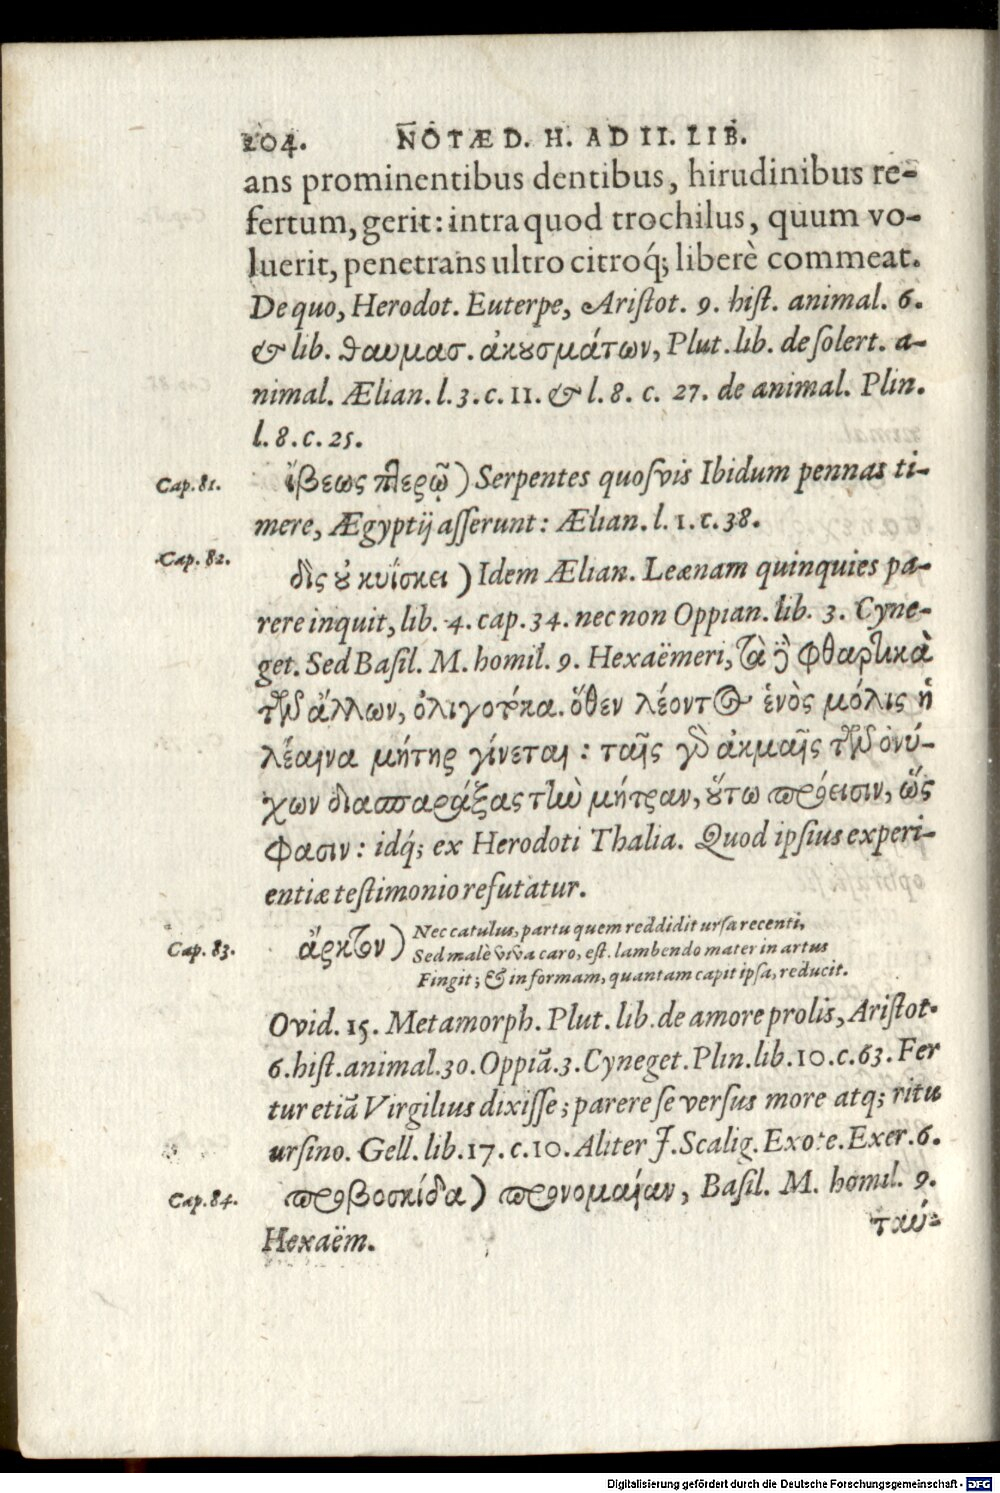 204. NOTÆ D. H. AD II. LIB.
ans prominentibus dentibus, hirudinibus re-
fertum, gerit: intra quod trochilus, quum vo-
luerit, penetrans ultro citroq́; liberè commeat.
De quo, Herodot. Euterpe, Ariſtot. 9. hiſt. animal. 6.
& lib. θαυμασ. ἀκȣσμάτων, Plut. lib. de ſolert. a-
nimal. Ælian. l. 3. c. 11. & l. 8. c. 27. de animal. Plin.
l. 8. c. 25.
Cap. 81. ἴβεως πτερῷ) Serpentes quoſvis Ibidum pennas ti-
mere, Ægyptij aſſerunt: Ælian. l. 1. c. 38.
Cap. 82. δὶς ȣ̓ κυΐσκει) Idem Ælian. Leænam quinquies pa-
rere inquit, lib. 4. cap. 34. nec non Oppian. lib. 3. Cyne-
get. Sed Baſil. M. homil. 9. Hexaëmeri, τὰ ἢ φθαρτικὰ
τῶν ἄλλων, ὀλιγοτόκα. ὅθεν λέοντος ἑνὸς μόλις ἡ
λέαινα μήτηρ γίνεται: ταῖς γὸ ἀκμαῖς τῶν ὀνύ-
χων διασπαράξας τὴν μήτραν, ȣ̔́τω πρόεισιν, ὥς
φασιν: idq́; ex Herodoti Thalia. Quod ipſius experi-
entiæ teſtimonio refutatur.
Cap. 83. ἄρκτον) Nec catulus, partu quem reddidit urſa recenti,
Sed malè viva caro, eſt. lambendo mater in artus
Fingit; & in formam, quantam capit ipſa, reducit.
Ovid. 15. Metamorph. Plut. lib. de amore prolis, Ariſtot.
6. hiſt. animal. 30. Oppiā. 3. Cyneget. Plin. lib. 10. c. 63. Fer
tur etiā Virgilius dixiſſe; parere ſe verſus more atq; ritu
urſino. Gell. lib. 17. c. 10. Aliter J. Scalig. Exote. Exer. 6.
Cap. 84. προβοσκίδα) προνομαίαν, Baſil. M. homil. 9.
Hexaëm.
ταύ-
Digitalisierung gefördert durch die Deutsche Forschungsgemeinschaft - DFG